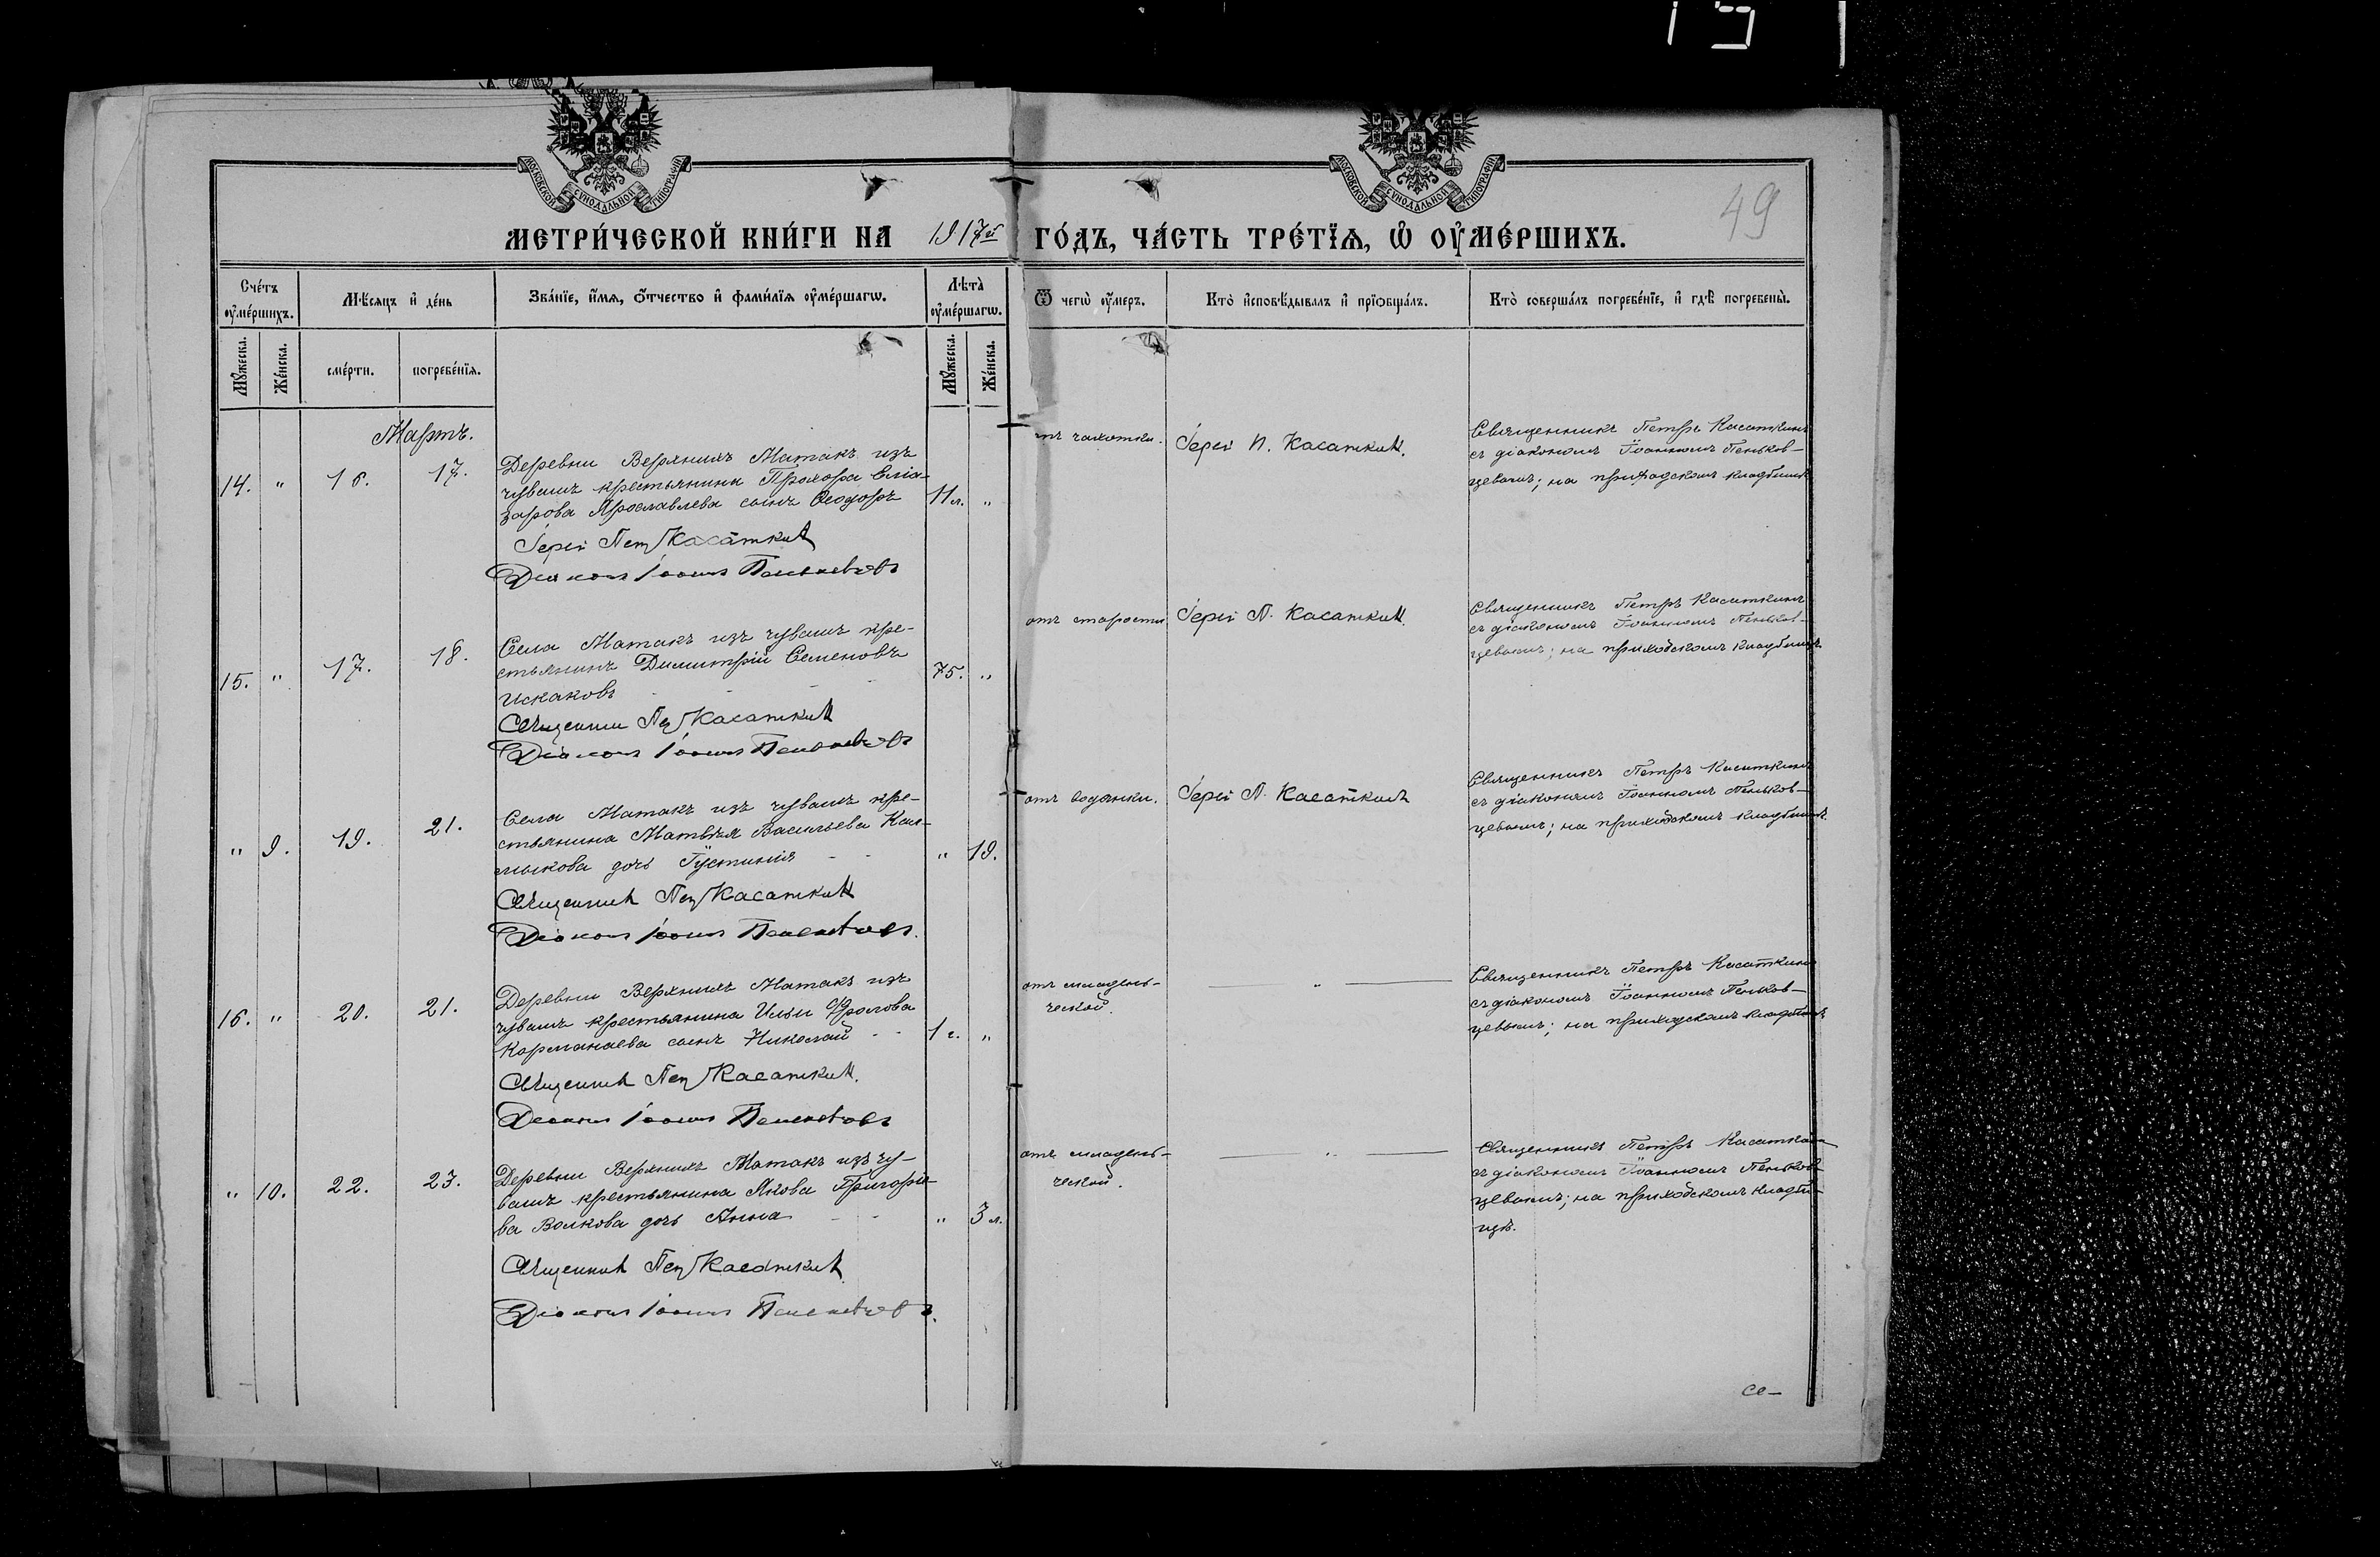 МОСКОВСКОЙ СѴНОДАЛЬНОЙ ТИПОГРАФІИ
МОСКОВСКОЙ СѴНОДАЛЬНОЙ ТИПОГРАФІИ
49
МЕТРИ́ЧЕСКОЙ КНИ́ГИ НА 1917й ГО́ДЪ, ЧА́СТЬ ТРЕ́ТЇѦ, Ѽ ОУ҆МЕ́РШИХЪ.
Сче́тъ оу҆ме́ршихъ.
Мѣ́сяцъ и҆ де́нь
Зва́нїе, и҆́мя, ѻ҆́тчество и҆ фами́лїя оу҆ме́ршагѡ.
Лѣта̀ оу҆ме́ршагѡ.
Ѿ чегѡ̀ оу҆́меръ.
Кто̀ и҆сповѣ́дывалъ и҆ прїѻбща́лъ.
Кто̀ соверша́лъ погребе́нїе, и҆ гдѣ̀ погребены̀.
Мꙋ́жеска.
Же́нска.
сме́рти.
погребе́нїя.
Мꙋ́жеска.
Же́нска.
Мартъ.
14. " 16. 17.
Деревни Верхнихъ Матакъ изъ
чувашъ крестьянина Прохора Елиа-
зарова Ярославлева сынъ Ѳеодоръ
11 л. "
Іерей Пет Касаткин
Діаконъ Іоаннъ Пеньковцевъ
отъ чахотки.
Іерей П. Касаткин.
Священникъ Петръ Касаткинъ
съ діакономъ Іоанномъ Пеньков-
цевымъ; на приходскомъ кладбищѣ
15. " 17. 18.
Села Матакъ изъ чувашъ кре-
стьянинъ Димитрій Семеновъ
Искаковъ
75. "
Священник Пет Касаткин
Діаконъ Іоаннъ Пеньковцевъ
отъ старости
Іерей П. Касаткин.
Священникъ Петръ Касаткинъ
съ діакономъ Іоанномъ Пеньков-
цевымъ; на приходскомъ кладбищѣ.
" 9. 19. 21.
Села Матакъ изъ чувашъ кре-
стьянина Матвѣя Васильева Кал-
мыкова дочь Іустинія
" 19.
Священник Пет Касаткин
Діаконъ Іоаннъ Пеньковцевъ.
отъ водянки.
Іерей П. Касаткинъ
Священникъ Петръ Касаткинъ
съ діакономъ Іоанномъ Пеньков-
цевымъ; на приходскомъ кладбищѣ.
16. " 20. 21.
Деревни Верхнихъ Матакъ изъ
чувашъ крестьянина Ильи Фролова
Карманаева сынъ Николай
1 г. "
Священник Пет Касаткин.
Діаконъ Іоаннъ Пеньковцевъ
отъ младень-
ческой.
"
Священникъ Петръ Касаткинъ
съ діакономъ Іоанномъ Пеньков-
цевымъ; на приходскомъ кладбищѣ
" 10. 22. 23.
Деревни Верхнихъ Матакъ изъ чу-
вашъ крестьянина Якова Григорье-
ва Волкова дочь Анна
" 3 л.
Священник Пет Касаткин
Діаконъ Іоаннъ Пеньковцевъ.
отъ младень-
ческой.
"
Священникъ Петръ Касаткинъ
съ діакономъ Іоанномъ Пеньков-
цевымъ; на приходскомъ кладби-
щѣ.
се-